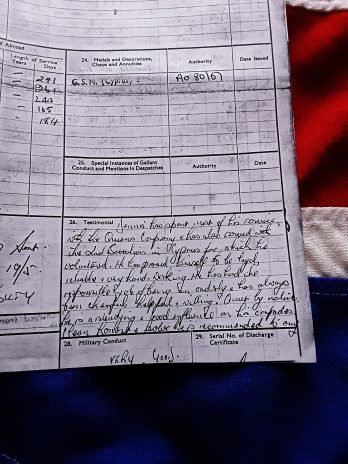 d Abroad
Length of Service
Years
Days
241
240
165
184
24. Medals and Decorations, Clasps and Annuities
Authority
Date Issued
G.S.M. (Cyprus)
AO 80/56
25. Special Instances of Gallant Conduct and Mentions in Despatches
Authority
Date
26. Testimonial
has spent most of his service
with the Queens Company & has also served with
the 2nd Battalion in Cyprus for which he
volunteered. He has proved himself to be loyal,
reliable & very hard working. He has had the
responsible job of being an orderly & has always
been cheerful, helpful & willing. Quiet by nature
he is a steadying & good influence on his comrades
Clean, honest & sober he is recommended to any
28. Military Conduct
29. Serial No. of Discharge Certificate
Very Good.